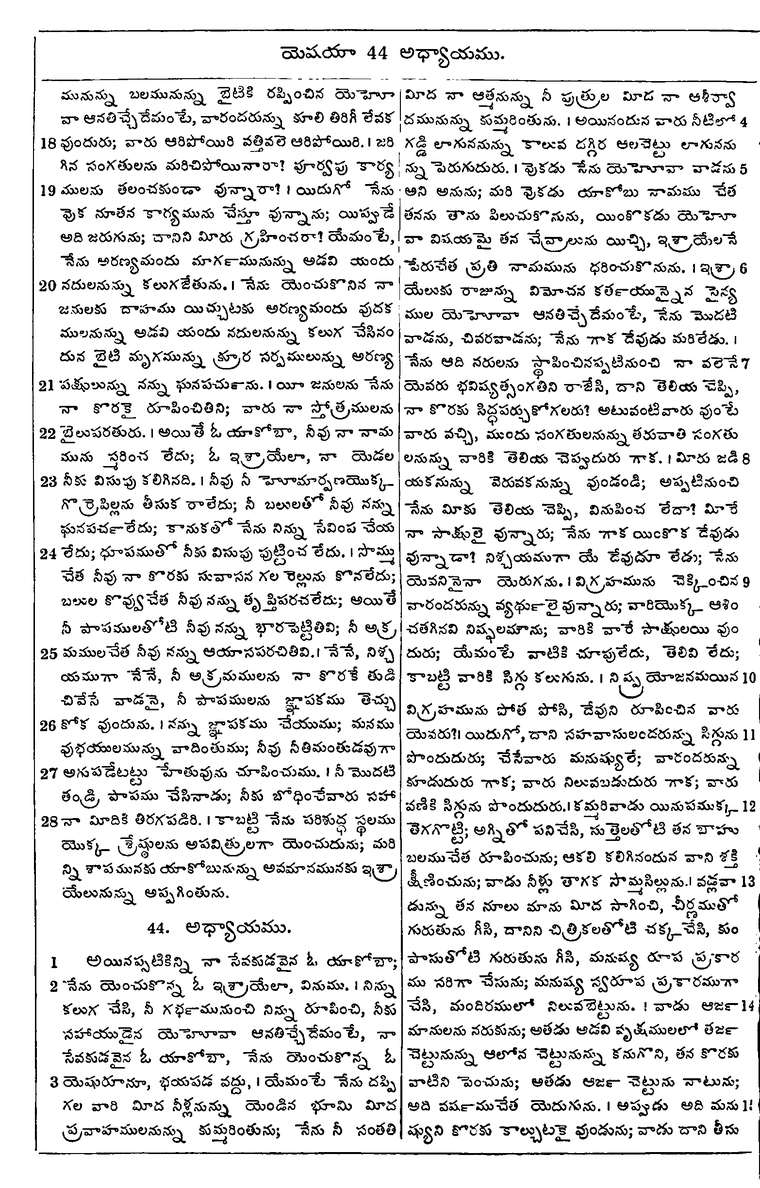 యెషయా 44 అధ్యాయము.
మునున్ను బలమునున్ను బైటికి రప్పించిన యెహోూ
వా ఆనతిచ్చేదేమంటే, వారందరున్ను కూలి తిరిగీ లేవక
18 వుందురు; వారు ఆరిపోయిరి వత్తివలె ఆరిపోయిరి. । జరి
గిన సంగతులను మరిచిపోయినారా? పూర్వపు కార్య
19 ములను తలంచకుండా వున్నారా? । యిదుగో నేను
వొక నూతన కార్యమును చేస్తూ వున్నాను; యిప్పుడే
అది జరుగును; దానిని మీరు గ్రహించరా? యేమంటే,
నేను అరణ్యమందు మార్గమునున్ను అడవి యందు
20 నదులనున్ను కలుగజేతును. । నేను యెంచుకొనిన నా
జనులకు దాహము యిచ్చుటకు అరణ్యమందు వుదక
ములనున్ను అడవి యందు నదులనున్ను కలుగ చేసినం
దున బైటి మృగమున్ను క్రూర సర్పములున్ను అరణ్య
21 పక్షులున్ను నన్ను ఘనపర్చును. । యీ జనులను నేను
నా కొరకై రూపించితిని; వారు నా స్తోత్రములను
22 బైలుపరతురు. । అయితే ఓ యాకోబా, నీవు నా నామ
మును స్మరించ లేదు; ఓ ఇశ్రాయేలా, నా యెడల
23 నీకు విసుపు కలిగినది. । నీవు నీ హోమార్పణయొక్క
గొర్రెపిల్లను తీసుక రాలేదు; నీ బలులతో నీవు నన్ను
ఘనపర్చలేదు; కానుకతో నేను నిన్ను సేవింప చేయ
24 లేదు; ధూపముతో నీకు విసుపు పుట్టించ లేదు. । సొమ్ము
చేత నీవు నా కొరకు సువాసన గల రెల్లును కొనలేదు;
బలుల కొవ్వుచేత నీవు నన్ను తృప్తిపరచలేదు; అయితే
నీ పాపములతోటి నీవు నన్ను భారపెట్టితివి; నీ అక్ర
25 మములచేత నీవు నన్ను ఆయాసపరచితివి. । నేనే, నిశ్చ
యముగా నేనే, నీ అక్రమములను నా కొరకే తుడి
చివేసే వాడనై, నీ పాపములను జ్ఞాపకము తెచ్చు
26 కోక వుందును. । నన్ను జ్ఞాపకము చేయుము; మనము
వుభయులమున్ను వాదింతుము; నీవు నీతిమంతుడవుగా
27 అగుపడేటట్టు హేతువును చూపించుము. । నీ మొదటి
తండ్రి పాపము చేసినాడు; నీకు బోధించేవారు సహా
28 నా మీదికి తిరగపడిరి. । కాబట్టి నేను పరిశుద్ధ స్థలము
యొక్క శ్రేష్ఠులను అపవిత్రులగా యెంచుదును; మరి
న్ని శాపమునకు యాకోబునున్ను అవమానమునకు ఇశ్రా
యేలునున్ను అప్పగింతును.
44. అధ్యాయము.
1 అయినప్పటికిన్ని నా సేవకుడవైన ఓ యాకోబా;
2 నేను యెంచుకొన్న ఓ ఇశ్రాయేలా, వినుము. । నిన్ను
కలుగ చేసి, నీ గర్భమునుంచి నిన్ను రూపించి, నీకు
సహాయుడైన యెహోవా ఆనతిచ్చేదేమంటే, నా
సేవకుడవైన ఓ యాకోబా, నేను యెంచుకొన్న ఓ
3 యెషురూనూ, భయపడ వద్దు, । యేమంటే నేను దప్పి
గల వారి మీద నీళ్లనున్ను యెండిన భూమి మీద
ప్రవాహములనున్ను కుమ్మరింతును; నేను నీ సంతతి
మీద నా ఆత్మనున్ను నీ పుత్రుల మీద నా ఆశీర్వా
దమునున్ను కుమ్మరింతును. । అయినందున వారు నీటిలో 4
గడ్డి లాగుననున్ను కాలువ దగ్గిర ఆలచెట్టు లాగునను
న్ను పెరుగుదురు. । వొకడు నేను యెహోవా వాడను 5
అని అనును; మరి వొకడు యాకోబు నామము చేత
తనను తాను పిలుచుకొనును, యింకొకడు యెహోూ
వా విషయమై తన చేవ్రాలును యిచ్చి, ఇశ్రాయేలనే
పేరుచేత ప్రతి నామమును ధరించుకొనును. । ఇశ్రా 6
యేలుకు రాజున్ను విమోచన కర్తయున్నైన సైన్య
ముల యెహోవా ఆనతిచ్చేదేమంటే, నేను మొదటి
వాడను, చివరవాడను; నేను గాక దేవుడు మరిలేడు. ।
నేను ఆది నరులను స్థాపించినప్పటినుంచి నా వలెనే 7
యెవరు భవిష్యత్సంగతిని రాజేసి, దాని తెలియ చెప్పి,
నా కొరకు సిద్ధపర్చుకోగలరు? అటువంటివారు వుంటే
వారు వచ్చి, ముందు సంగతులనున్ను తరువాతి సంగతు
లనున్ను వారికి తెలియ చెప్పుదురు గాక. । మీరు జడి 8
యకనున్ను వెరువకనున్ను వుండండి; అప్పటినుంచి
నేను మీకు తెలియ చెప్పి, వినుపించ లేదా? మీరే
నా సాక్షులై వున్నారు; నేను గాక యింకొక దేవుడు
వున్నాడా? నిశ్చయముగా యే దేవుడూ లేడు; నేను
యెవనినైనా యెరుగను. । విగ్రహమును చెక్కించిన 9
వారందరున్ను వ్యర్థులై వున్నారు; వారియొక్క ఆశిం
చతగినవి నిష్ఫలమౌను; వారికి వారే సాక్షులయి వుం
దురు; యేమంటే వాటికి చూపులేదు, తెలివి లేదు;
కాబట్టి వారికి సిగ్గు కలుగును. । నిష్ప్రయోజనమయిన 10
విగ్రహమును పోత పోసి, దేవుని రూపించిన వారు
యెవరు? । యిదుగో, దాని సహవాసులందరున్ను సిగ్గును 11
పొందుదురు; చేసేవారు మనుష్యులే; వారందరున్ను
కూడుదురు గాక; వారు నిలువబడుదురు గాక; వారు
వణికి సిగ్గును పొందుదురు. । కమ్మరివాడు యినుపముక్క 12
తెగగొట్టి; అగ్నితో పనిచేసి, సుత్తెలతోటి తన బాహు
బలముచేత రూపించును; ఆకలి కలిగినందున వాని శక్తి
క్షీణించును; వాడు నీళ్లు తాగక సొమ్మసిల్లును. । వడ్లవా 13
డున్ను తన నూలు మాను మీద సాగించి, చీర్ణముతో
గురుతును గీసి, దానిని చిత్రికలతోటి చక్క చేసి, కుం
పాసుతోటి గురుతును గీసి, మనుష్య రూప ప్రకార
ము సరిగా చేసును; మనుష్య స్వరూప ప్రకారముగా
చేసి, మందిరములో నిలువబెట్టును. । వాడు ఆర్జ 14
మానులను నరుకును; అతడు అడవి వృక్షములలో తర్జ
చెట్టునున్ను ఆలోన చెట్టునున్ను కనుగొని, తన కొరకు
వాటిని పెంచును; అతడు ఆర్జ చెట్టును నాటును;
అది వర్షముచేత యెదుగును. । అప్పుడు అది మను 1
ష్యుని కొరకు కాల్చుటకై వుండును; వాడు దాని తీసు